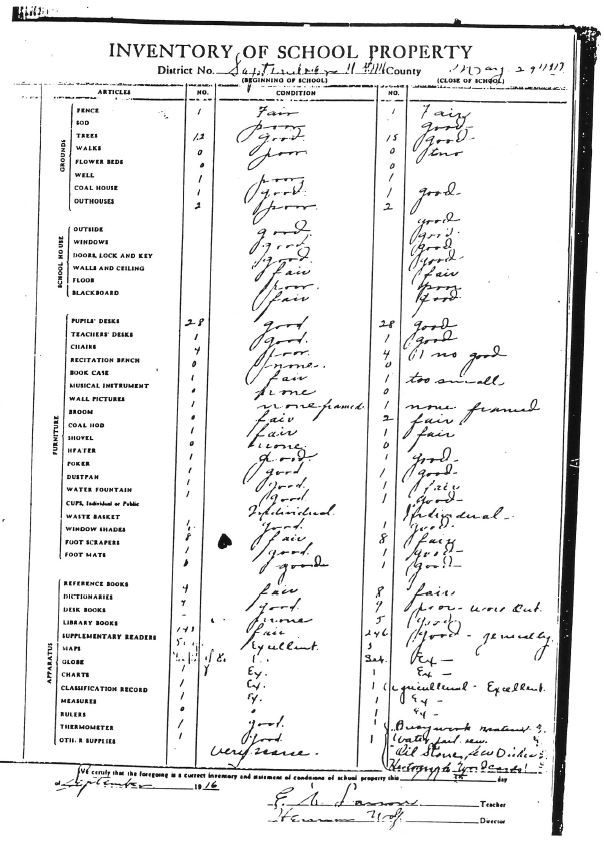 INVENTORY OF SCHOOL PROPERTY
District No. September 11th 1916 County May 29 1917
(BEGINNING OF SCHOOL) (CLOSE OF SCHOOL)
ARTICLES NO. CONDITION NO.
GROUNDS
FENCE 1 Fair 1 Fair
SOD poor good
TREES 12 good 15 good
WALKS 0 poor 0 two
FLOWER BEDS 0 0
WELL 1 poor 1
COAL HOUSE 1 good 1 good
OUTHOUSES 2 poor 2
SCHOOL HOUSE
good
OUTSIDE good good
WINDOWS good good
DOORS, LOCK AND KEY good good
WALLS AND CEILING fair fair
FLOOR poor poor
BLACKBOARD fair good
FURNITURE
PUPILS' DESKS 28 good 28 good
TEACHERS' DESKS 1 good 1 good
CHAIRS 4 poor 4 (1 no good
RECITATION BENCH 0 none 0
BOOK CASE 1 fair 1 too small
MUSICAL INSTRUMENT 0 none
WALL PICTURES none framed 1 none framed
BROOM 0 fair 2 fair
COAL HOD 1 fair 1 fair
SHOVEL 1 none 0
HEATER 0 good 1 good
POKER 1 good 1 good
DUSTPAN 1 good 1 Fair
WATER FOUNTAIN 1 good 1 good
CUPS, Individual or Public Individual Individual
WASTE BASKET 1 good 1 good
WINDOW SHADES 8 fair 8 fair
FOOT SCRAPERS 1 good 1 good
FOOT MATS good 1 good
APPARATUS
REFERENCE BOOKS 4 fair 8 fair
DICTIONARIES 4 good 4 poor - worn out
DESK BOOKS - none 5 good
LIBRARY BOOKS fair 246 good - generally
SUPPLEMENTARY READERS Excellent
MAPS Set Ex -
GLOBE 1 Ex. 1 Ex -
CHARTS 1 Ex. 1 (agricultural - Excellent
CLASSIFICATION RECORD 1 Ex. 1 Ex -
MEASURES 0 Ex -
RULERS 1 good 1
THERMOMETER 1 good 1
OTHER SUPPLIES very scarce. Oil Stove, few Dishes
We certify that the foregoing is a correct inventory and statement of conditions of school property this day
of September 1916
Teacher
Director